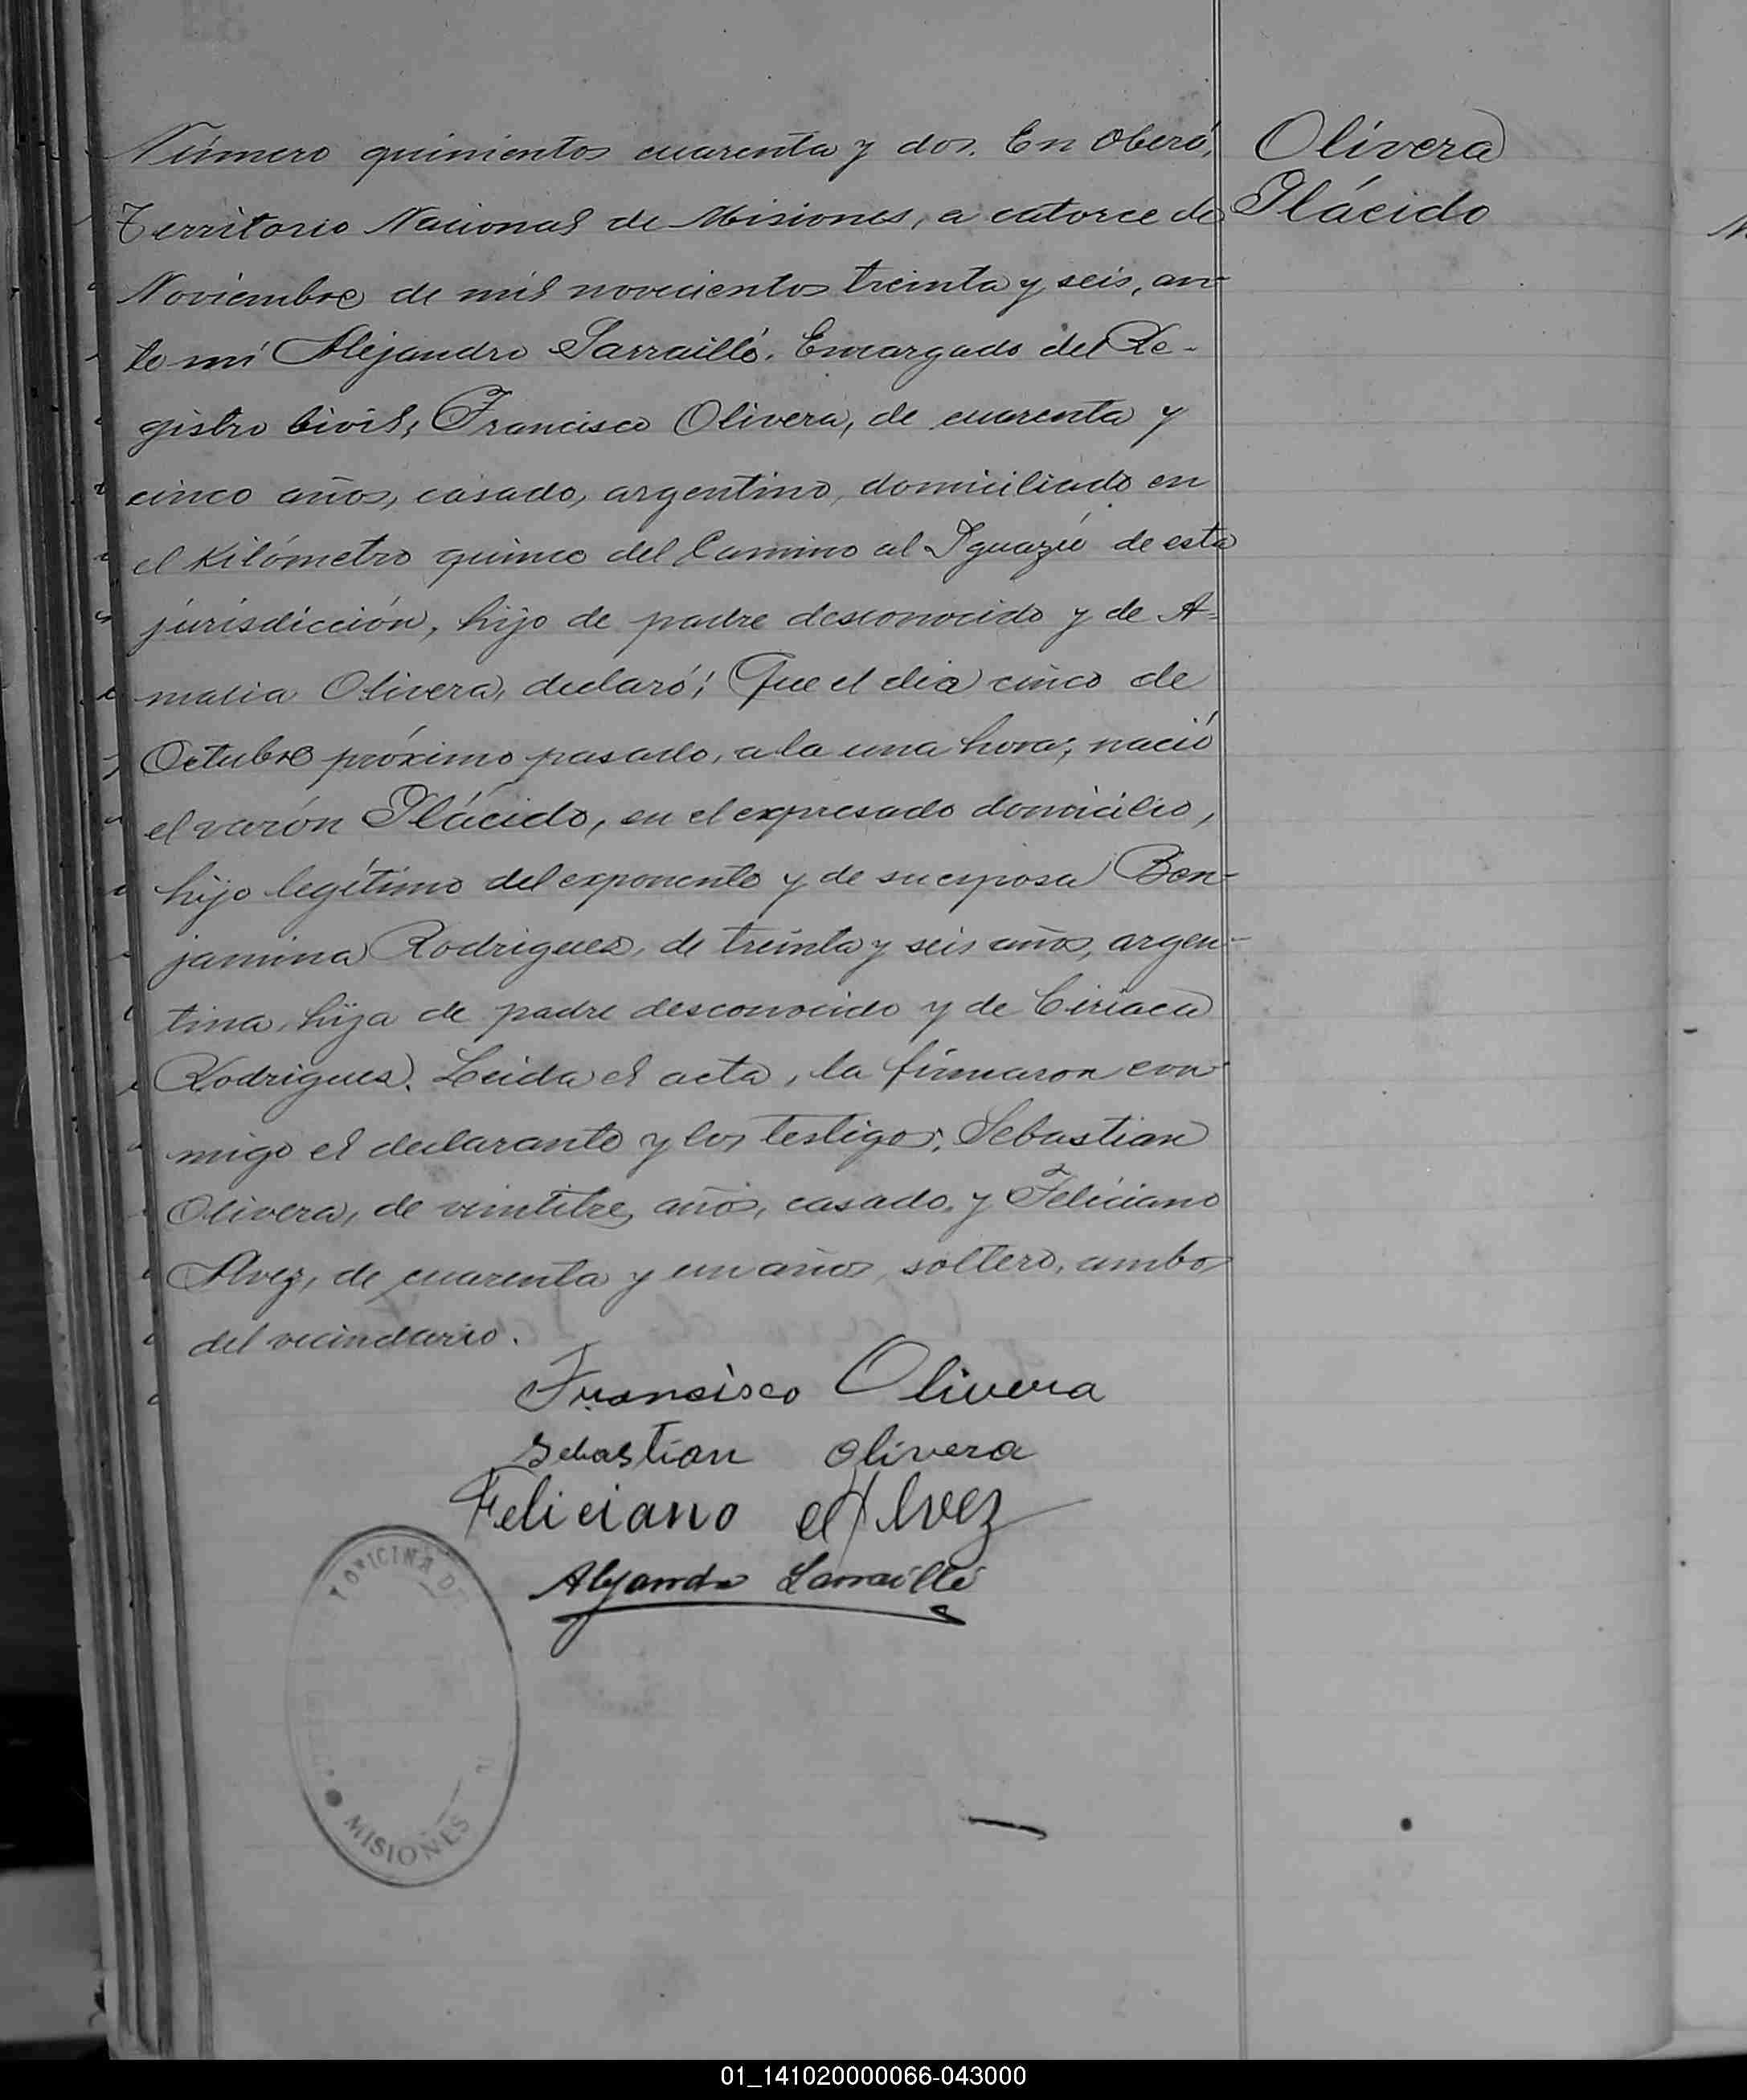 Olivera
Plácido
Número quinientos cuarenta y dos. En Oberá,
Territorio Nacional de Misiones, a catorce de
Noviembre de mil novecientos treinta y seis, an-
te mí Alejandro Larraillé, Encargado del Re-
gistro Civil, Francisco Olivera, de cuarenta y
cinco años, casado, argentino, domiciliado en
el Kilómetro quince del Camino al Iguazú de esta
jurisdicción, hijo de padre desconocido y de A-
malia Olivera, declaró: Que el dia cinco de
Octubre próximo pasado, a la una hora, nació
el varón Plácido, en el expresado domicilio,
hijo legítimo del exponente y de su esposa Ben-
jamina Rodrigues, de treinta y seis años, argen-
tina, hija de padre desconocido y de Ciriaca
Rodrigues. Leida el acta, la firmaron con-
migo el declarante y los testigos: Sebastian
Olivera, de veintitres años, casado, y Feliciano
Alvez, de cuarenta y un años, soltero, ambos
del vecindario.
Francisco Olivera
Sebastian Olivera
Feliciano Alvez
Alejandro Larraillé
OFICINA DE
MISIONES
01_141020000066-043000